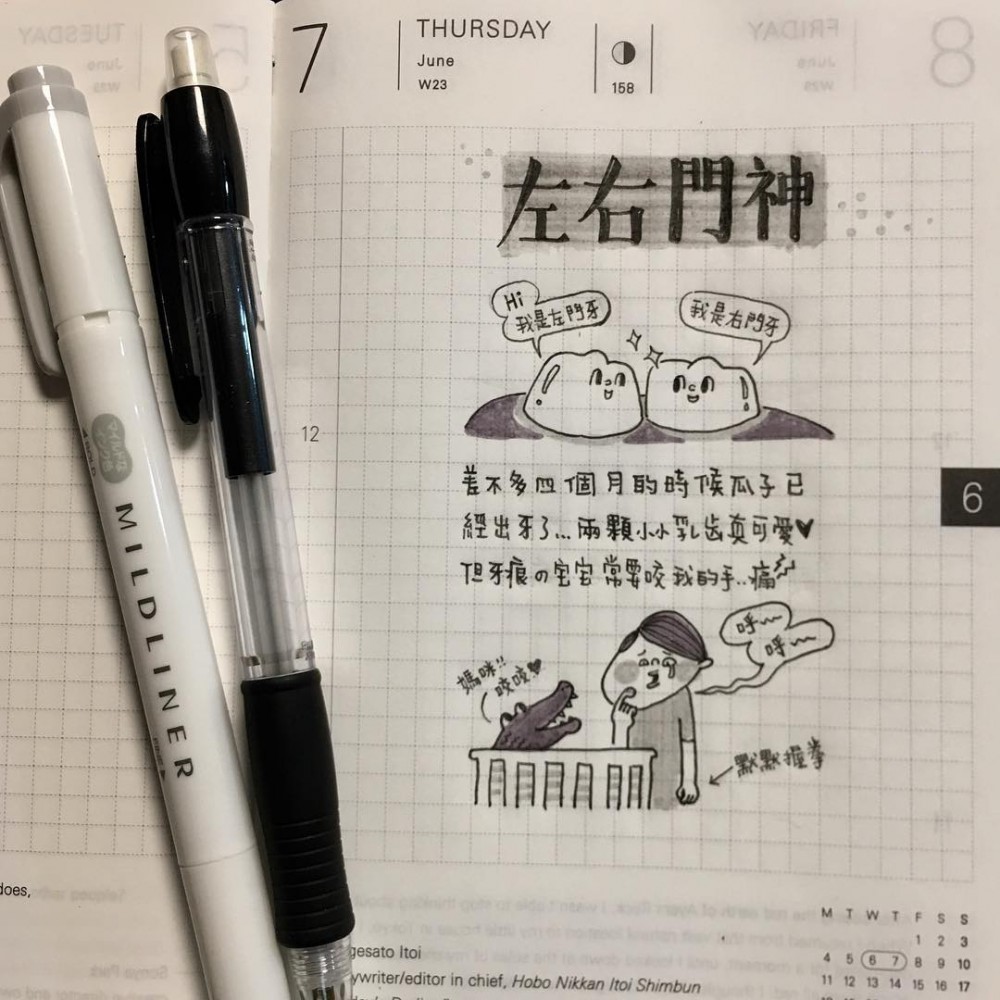 7
THURSDAY
June
W23
158
左右門神
Hi
我是左門牙
我是右門牙
12
差不多四個月的時候瓜子已
經出牙了...兩顆小小乳齒真可愛♥
但牙痕の宝宝常要咬我的手..痛
媽咪!!
咬咬♥
呼~~
呼~~
默默握拳
6
MILDLINER
does,
gesato Itoi
ywriter/editor in chief, Hobo Nikkan Itoi Shimbun
M T W T F S S
1 2 3
4 5 6 7 8 9 10
11 12 13 14 15 16 17